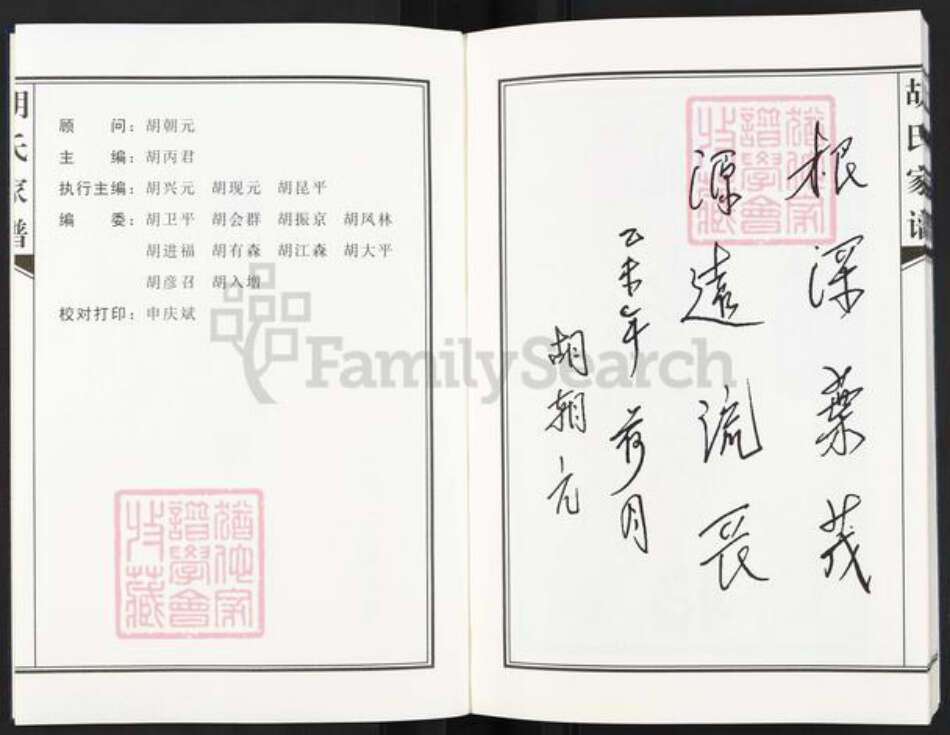 胡氏家谱
顾 问：胡朝元
主 编：胡丙君
执行主编：胡兴元 胡现元 胡昆平
编 委：胡卫平 胡会群 胡振京 胡风林
胡进福 胡有森 胡江森 胡大平
胡彦召 胡入增
校对打印：申庆斌
猶他家
譜學會
收藏
FamilySearch
胡氏家谱
猶他家
譜學會
收藏
根深葉茂
源遠流长
乙未年荷月
胡朝元